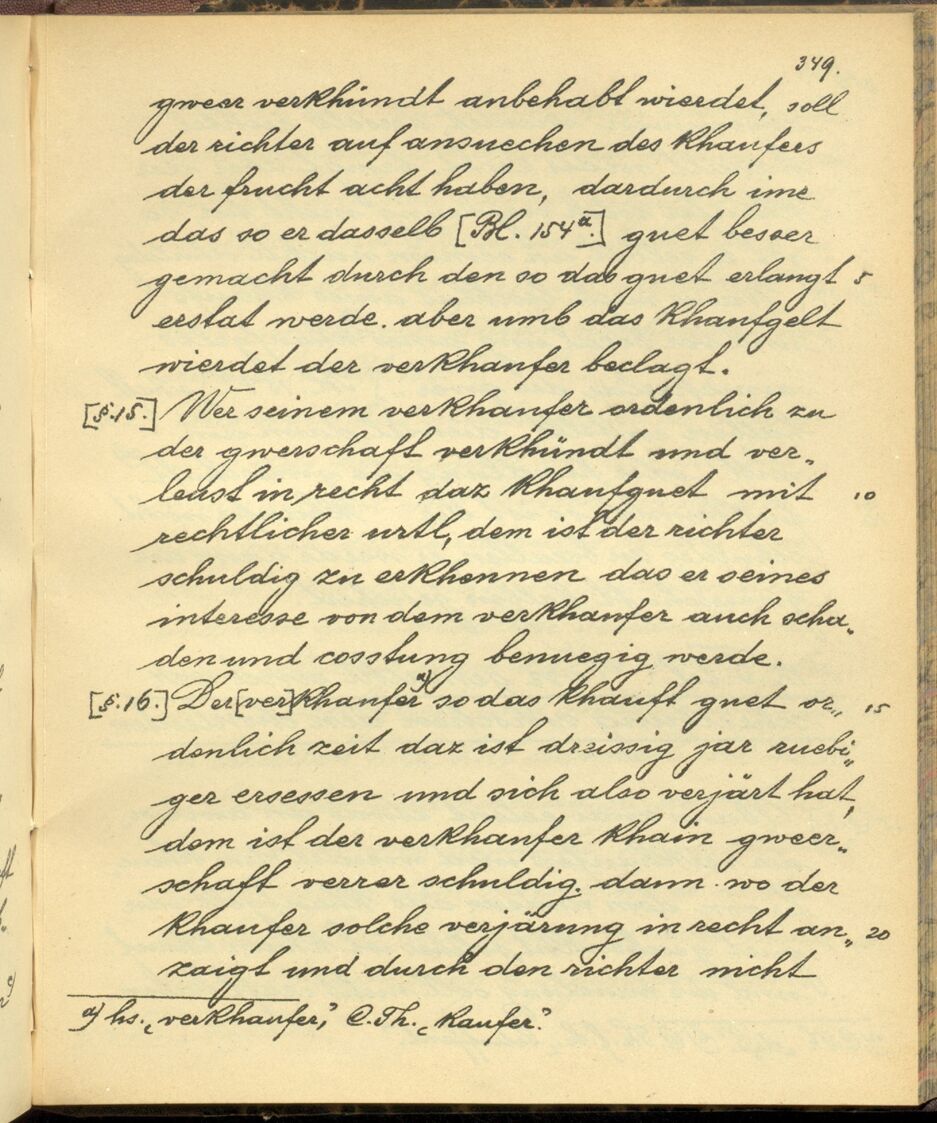 349.
gweer verkhündt anbehabt wierdet, soll
der richter auf ansuechen des khaufers
der frucht acht haben, dardurch ime
das so er dasselb [Bl. 154a.] guet besser
gemacht durch den so das guet erlangt 5
erstat werde. aber umb das khaufgelt
wierdet der verkhaufer beclagt.
[§.15.] Wer seinem verkhaufer ordenlich zu
der gwerschaft verkhündt und ver„
leust in recht daz khaufguet mit 10
rechtlicher urtl, dem ist der richter
schuldig zu erkhennen das er seines
interesse von dem verkhaufer auch scha„
den und cosstung benuegig werde.
[§.16.] Der [ver]khaufer a) so das khauft guet or„ 15
denlich zeit daz ist dreissig jar ruebi„
ger ersessen und sich also verjärt hat,
dem ist der verkhaufer khain gweer„
schaft verrer schuldig. dann wo der
khaufer solche verjärung in recht an„ 20
zaigt und durch den richter nicht
a) hs. „verkhaufer", C.Th. „kaufer".